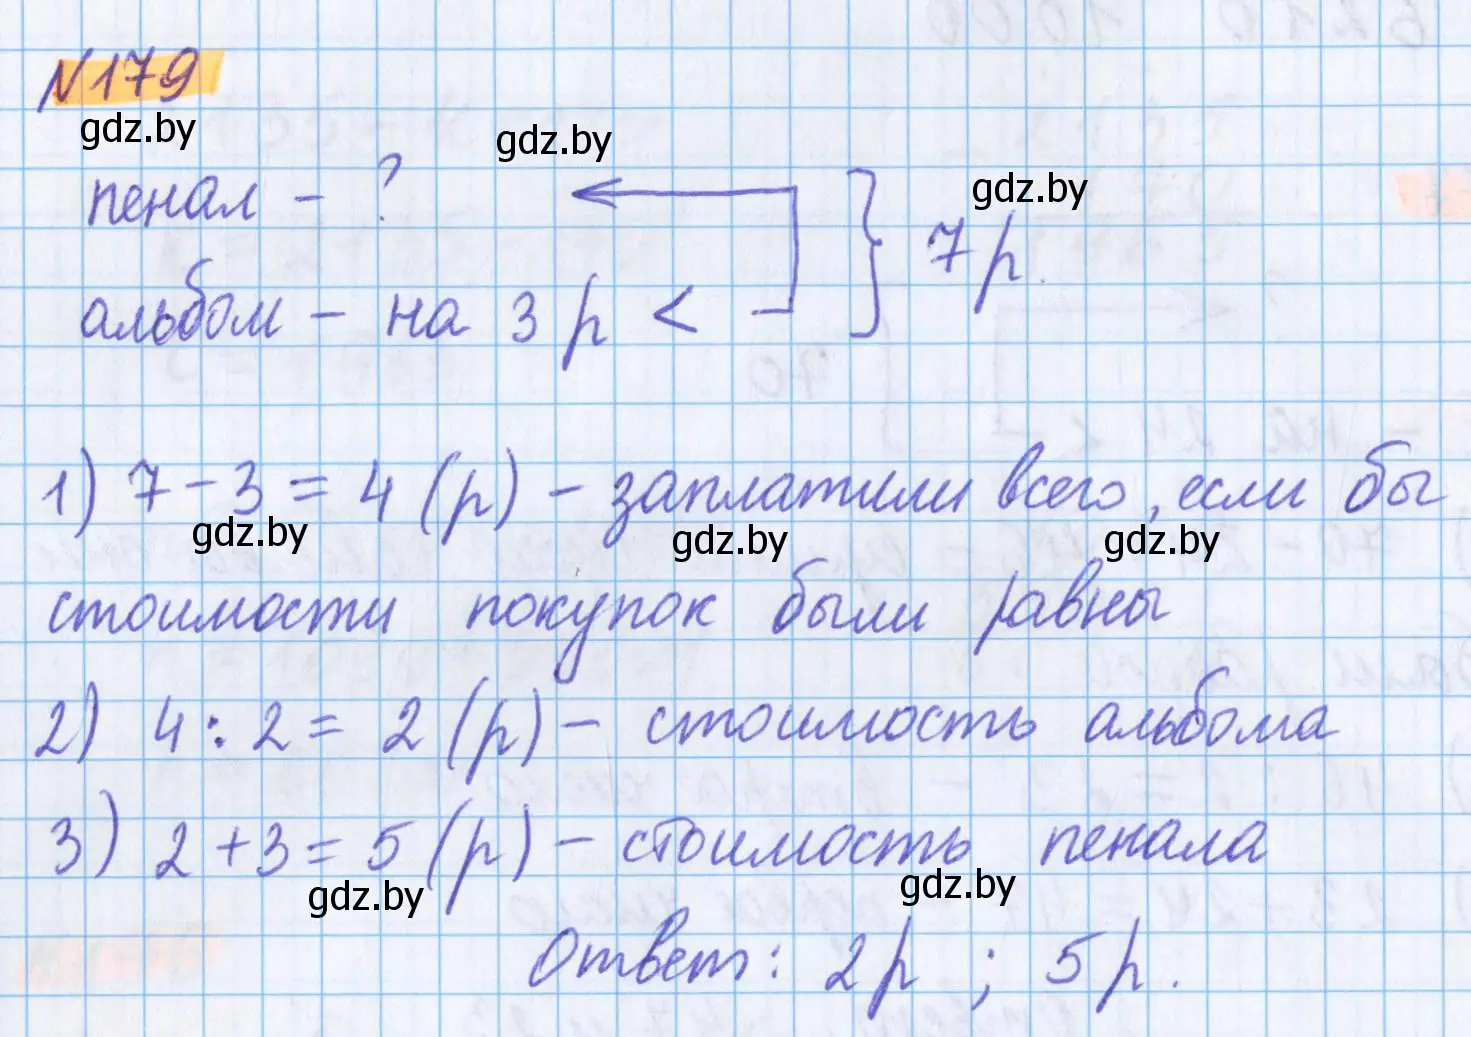 N 179
gdz.by
gdz.by
пенал - ?
gdz.by
альбом - на 3 р <
} 7 р.
1) 7 - 3 = 4 (р) - заплатили всего, если бы
gdz.by gdz.by gdz.by
стоимости покупок были равны
2) 4 : 2 = 2 (р) - стоимость альбома
3) 2 + 3 = 5 (р) - стоимость пенала
gdz.by gdz.by
Ответ: 2 р ; 5 р.